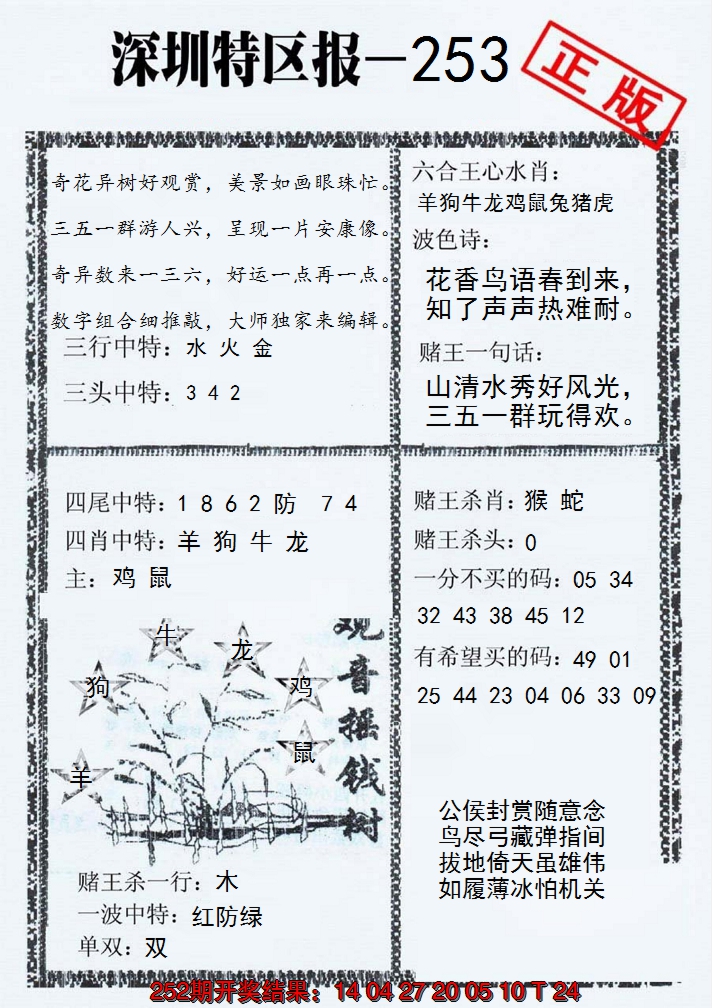 深圳特区报-253
正版
奇花异树好观赏，美景如画眼珠忙。
三五一群游人兴，呈现一片安康像。
奇异数来一三六，好运一点再一点。
数字组合细推敲，大师独家来编辑。
三行中特：水 火 金
三头中特：3 4 2
六合王心水肖：
羊狗牛龙鸡鼠兔猪虎
波色诗：
花香鸟语春到来，
知了声声热难耐。
赌王一句话：
山清水秀好风光，
三五一群玩得欢。
四尾中特：1 8 6 2 防 7 4
四肖中特：羊 狗 牛 龙
主：鸡 鼠
牛
龙
狗
鸡
鼠
羊
观音摇钱树
赌王杀一行：木
一波中特：红防绿
单双：双
赌王杀肖：猴 蛇
赌王杀头：0
一分不买的码：05 34
32 43 38 45 12
有希望买的码：49 01
25 44 23 04 06 33 09
公侯封赏随意念
鸟尽弓藏弹指间
拔地倚天虽雄伟
如履薄冰怕机关
252期开奖结果：14 04 27 20 05 10 T 24